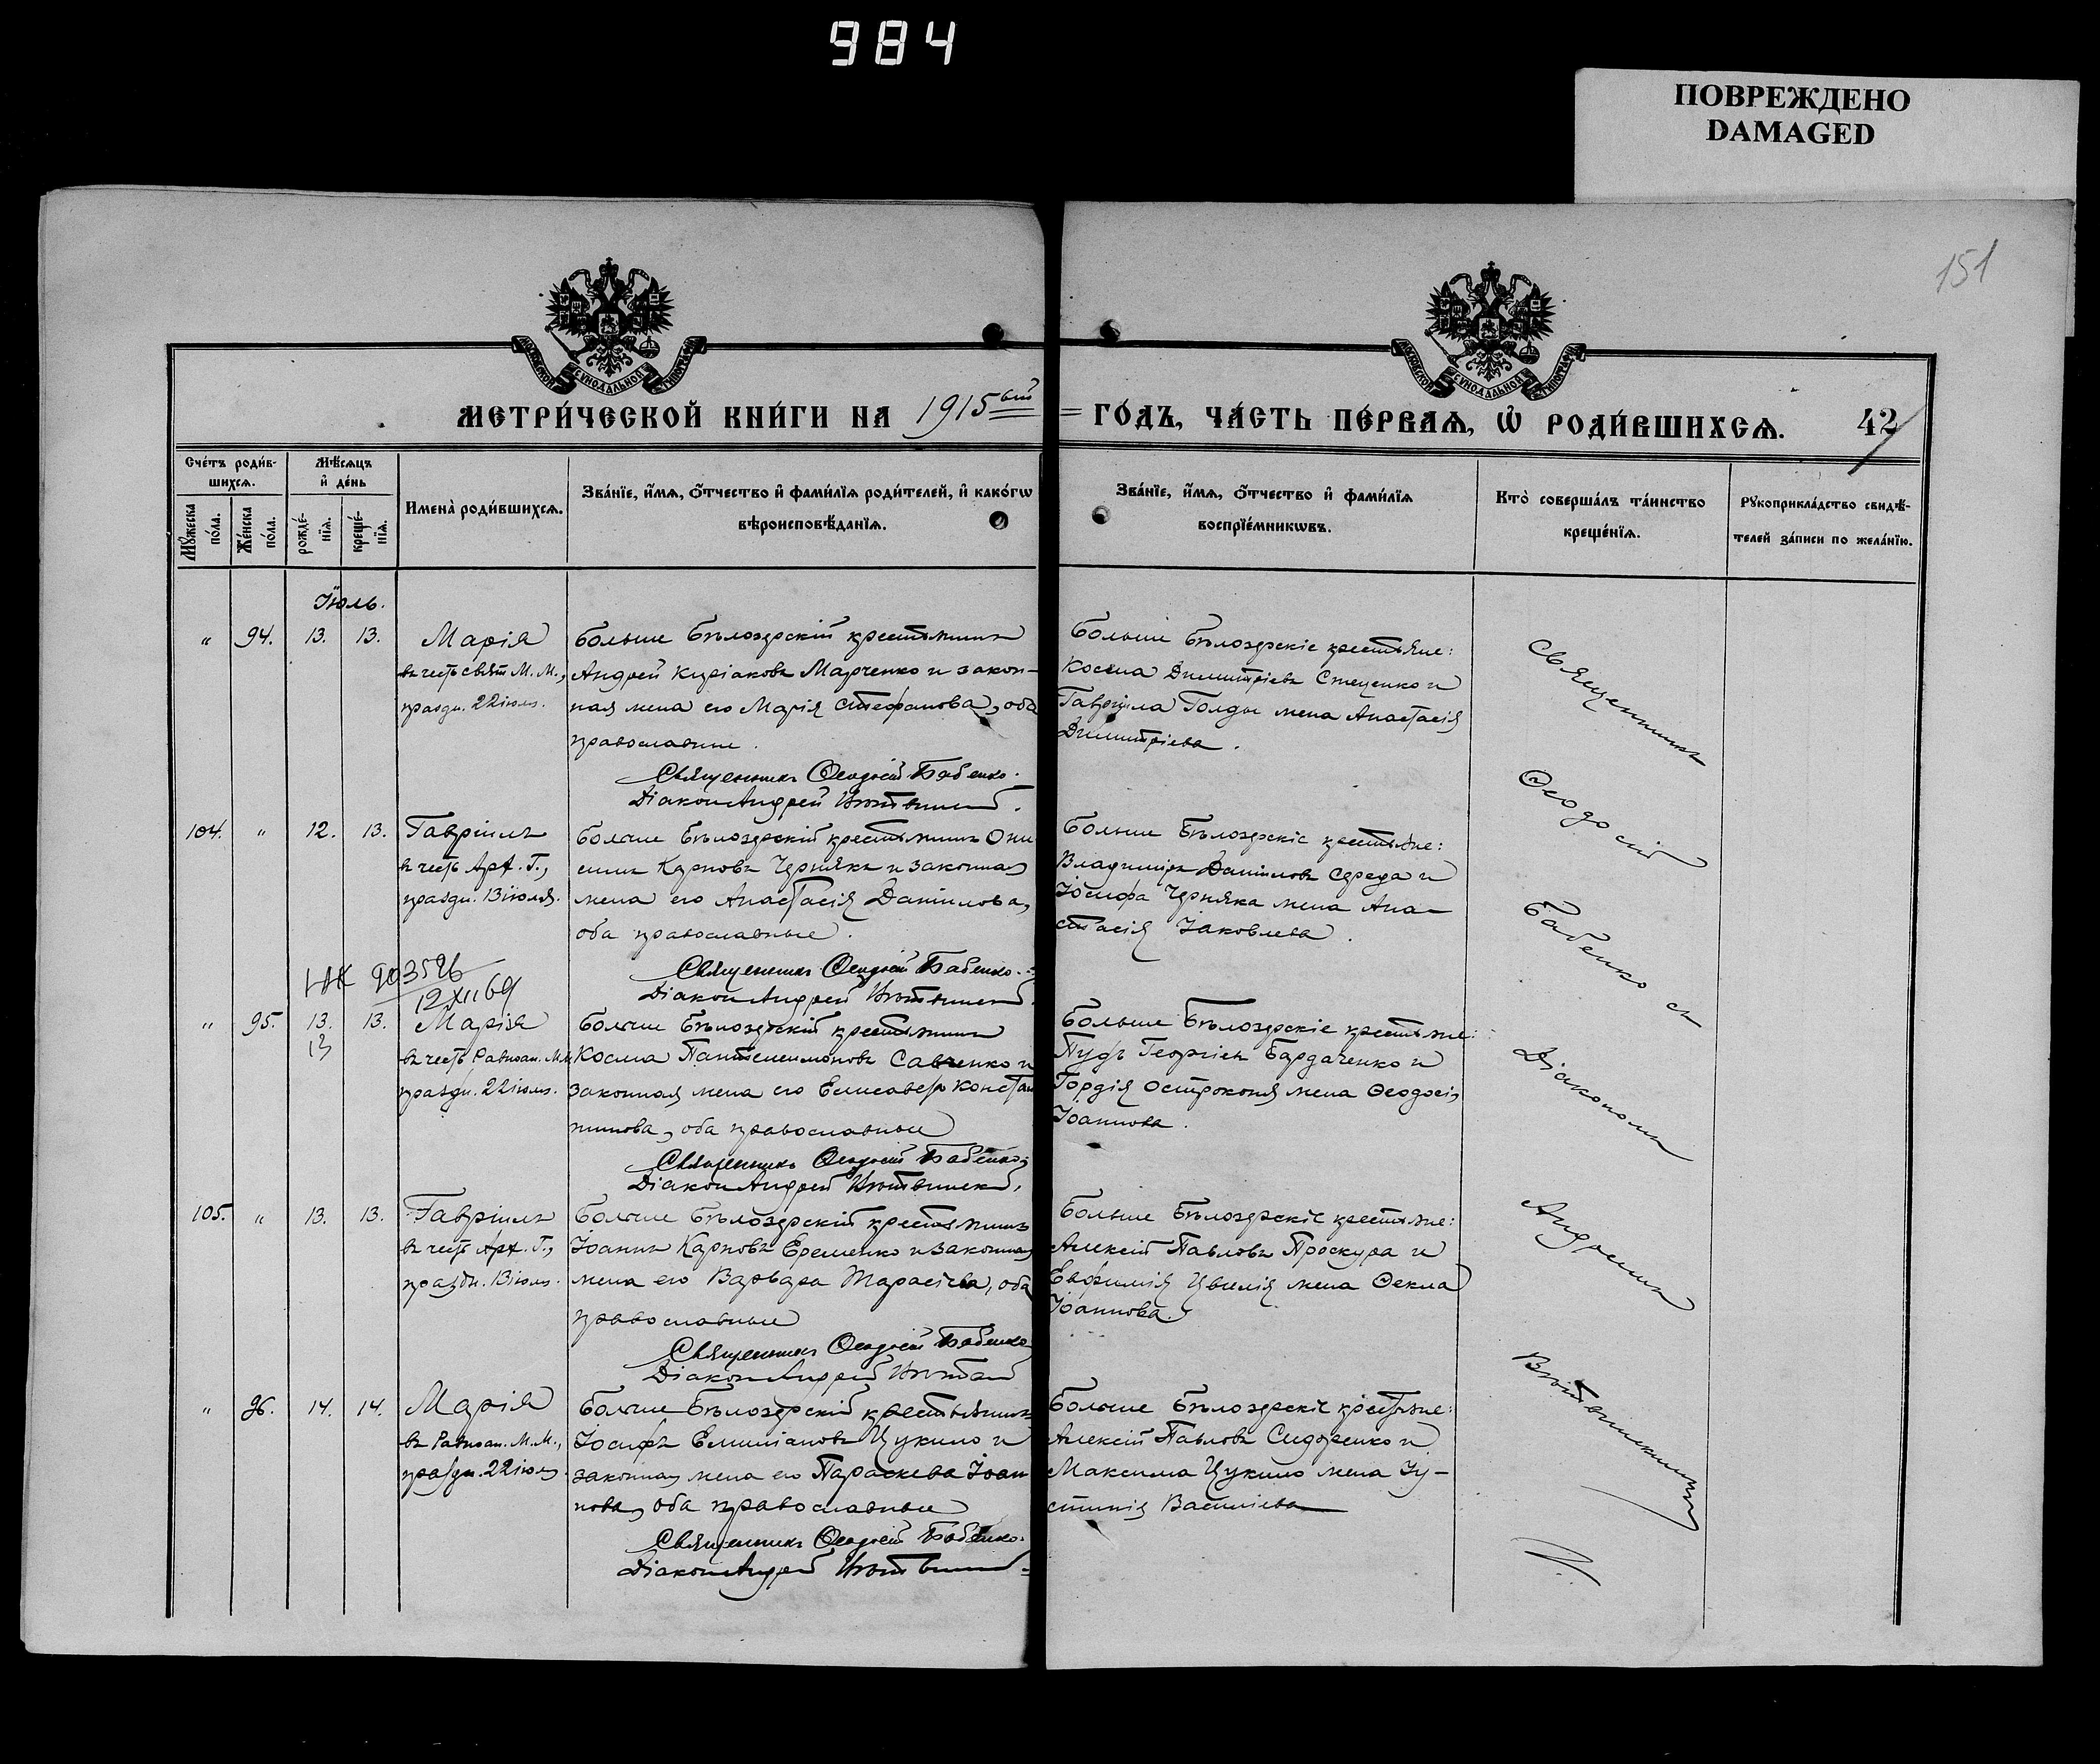 984
ПОВРЕЖДЕНО
DAMAGED
151
МЕТРИ́ЧЕСКОЙ КНИ́ГИ НА 1915ый
ГО́ДЪ, ЧА́СТЬ ПЕ́РВАѦ, Ѽ РОДИ́ВШИХСѦ. 42
Сче́тъ роди́в-
шихсѧ.
Мѣ́сѧцъ
и҆ де́нь
Мꙋ́жеска по́ла.
Же́нска по́ла.
рожде́-
нїѧ.
креще́-
нїѧ.
Имена̀ роди́вшихсѧ.
Зва́нїе, и҆́мѧ, ѻ҆́тчество и҆ фами́лїѧ роди́телей, и҆ како́гѡ
вѣроисповѣ́данїѧ.
Зва́нїе, и҆́мѧ, ѻ҆́тчество и҆ фами́лїѧ
воспрїе́мникѡвъ.
Кто̀ соверша́лъ та́инство
креще́нїѧ.
Рꙋкоприкла́дство свидѣ́-
телей за́писи по жела́нїю.
Іюль.
" 94. 13. 13.
Марія
въ честь свят М. М.,
праздн. 22 іюля.
Больше Бѣлозерскій крестьянинъ
Андрей Киріаковъ Марченко и закон-
ная жена его Марія Стефанова, оба
православные.
Священникъ Ѳеодосій Бабенко.
Діаконъ Андрей
Больше Бѣлозерскіе крестьяне:
Косма Димитріевъ Стеценко и
Гавріила Голды жена Анастасія
Димитріева.
104. " 12. 13.
Гавріилъ
въ честь Арх. Г.,
праздн. 13 іюля.
Больше Бѣлозерскій крестьянинъ Они
симъ Карповъ Чернякъ и законная
жена его Анастасія Даніилова,
оба православные.
Священникъ Ѳеодосій Бабенко.
Діаконъ Андрей
Больше Бѣлозерскіе крестьяне:
Владиміръ Даніиловъ Середа и
Іосифа Черняка жена Ана-
стасія Іаковлева.
903526
12 XII 69
" 95. 13. 13.
13
Марія
въ честь Равноап. М. М.
праздн. 22 іюля.
Больше Бѣлозерскій крестьянинъ
Косма Пантелеимоновъ Савченко и
законная жена его Елисавета Констан
тинова, оба православные
Священникъ Ѳеодосій Бабенко
Діаконъ Андрей
Больше Бѣлозерскіе крестьяне:
Пудъ Георгіевъ Бардаченко и
Гордія Остроконя жена Ѳеодосія
Іоаннова.
105. " 13. 13.
Гавріилъ
въ честь Арх. Г.,
праздн. 13 іюля.
Больше Бѣлозерскій крестьянинъ
Іоаннъ Карповъ Еременко и законная
жена его Варвара Тарасіева, оба
православные
Священникъ Ѳеодосій Бабенко
Діаконъ Андрей
Больше Бѣлозерскіе крестьяне:
Алексій Павловъ Проскура и
Евфимія Цвилія жена Ѳекла
Іоаннова.
" 96. 14. 14.
Марія
въ Равноап. М. М.,
праздн. 22 іюля.
Больше Бѣлозерскій крестьянинъ
Іосифъ Емиліановъ Цукило и
законная жена его Параскева Іоан
нова, оба православные
Священникъ Ѳеодосій Бабенко.
Діаконъ Андрей
Больше Бѣлозерскіе крестьяне:
Алексій Павловъ Сидоренко и
Максима Цукило жена Іу-
стинія Василіева
Священникъ
Ѳеодосій
Бабенко съ
Діакономъ
Андреемъ